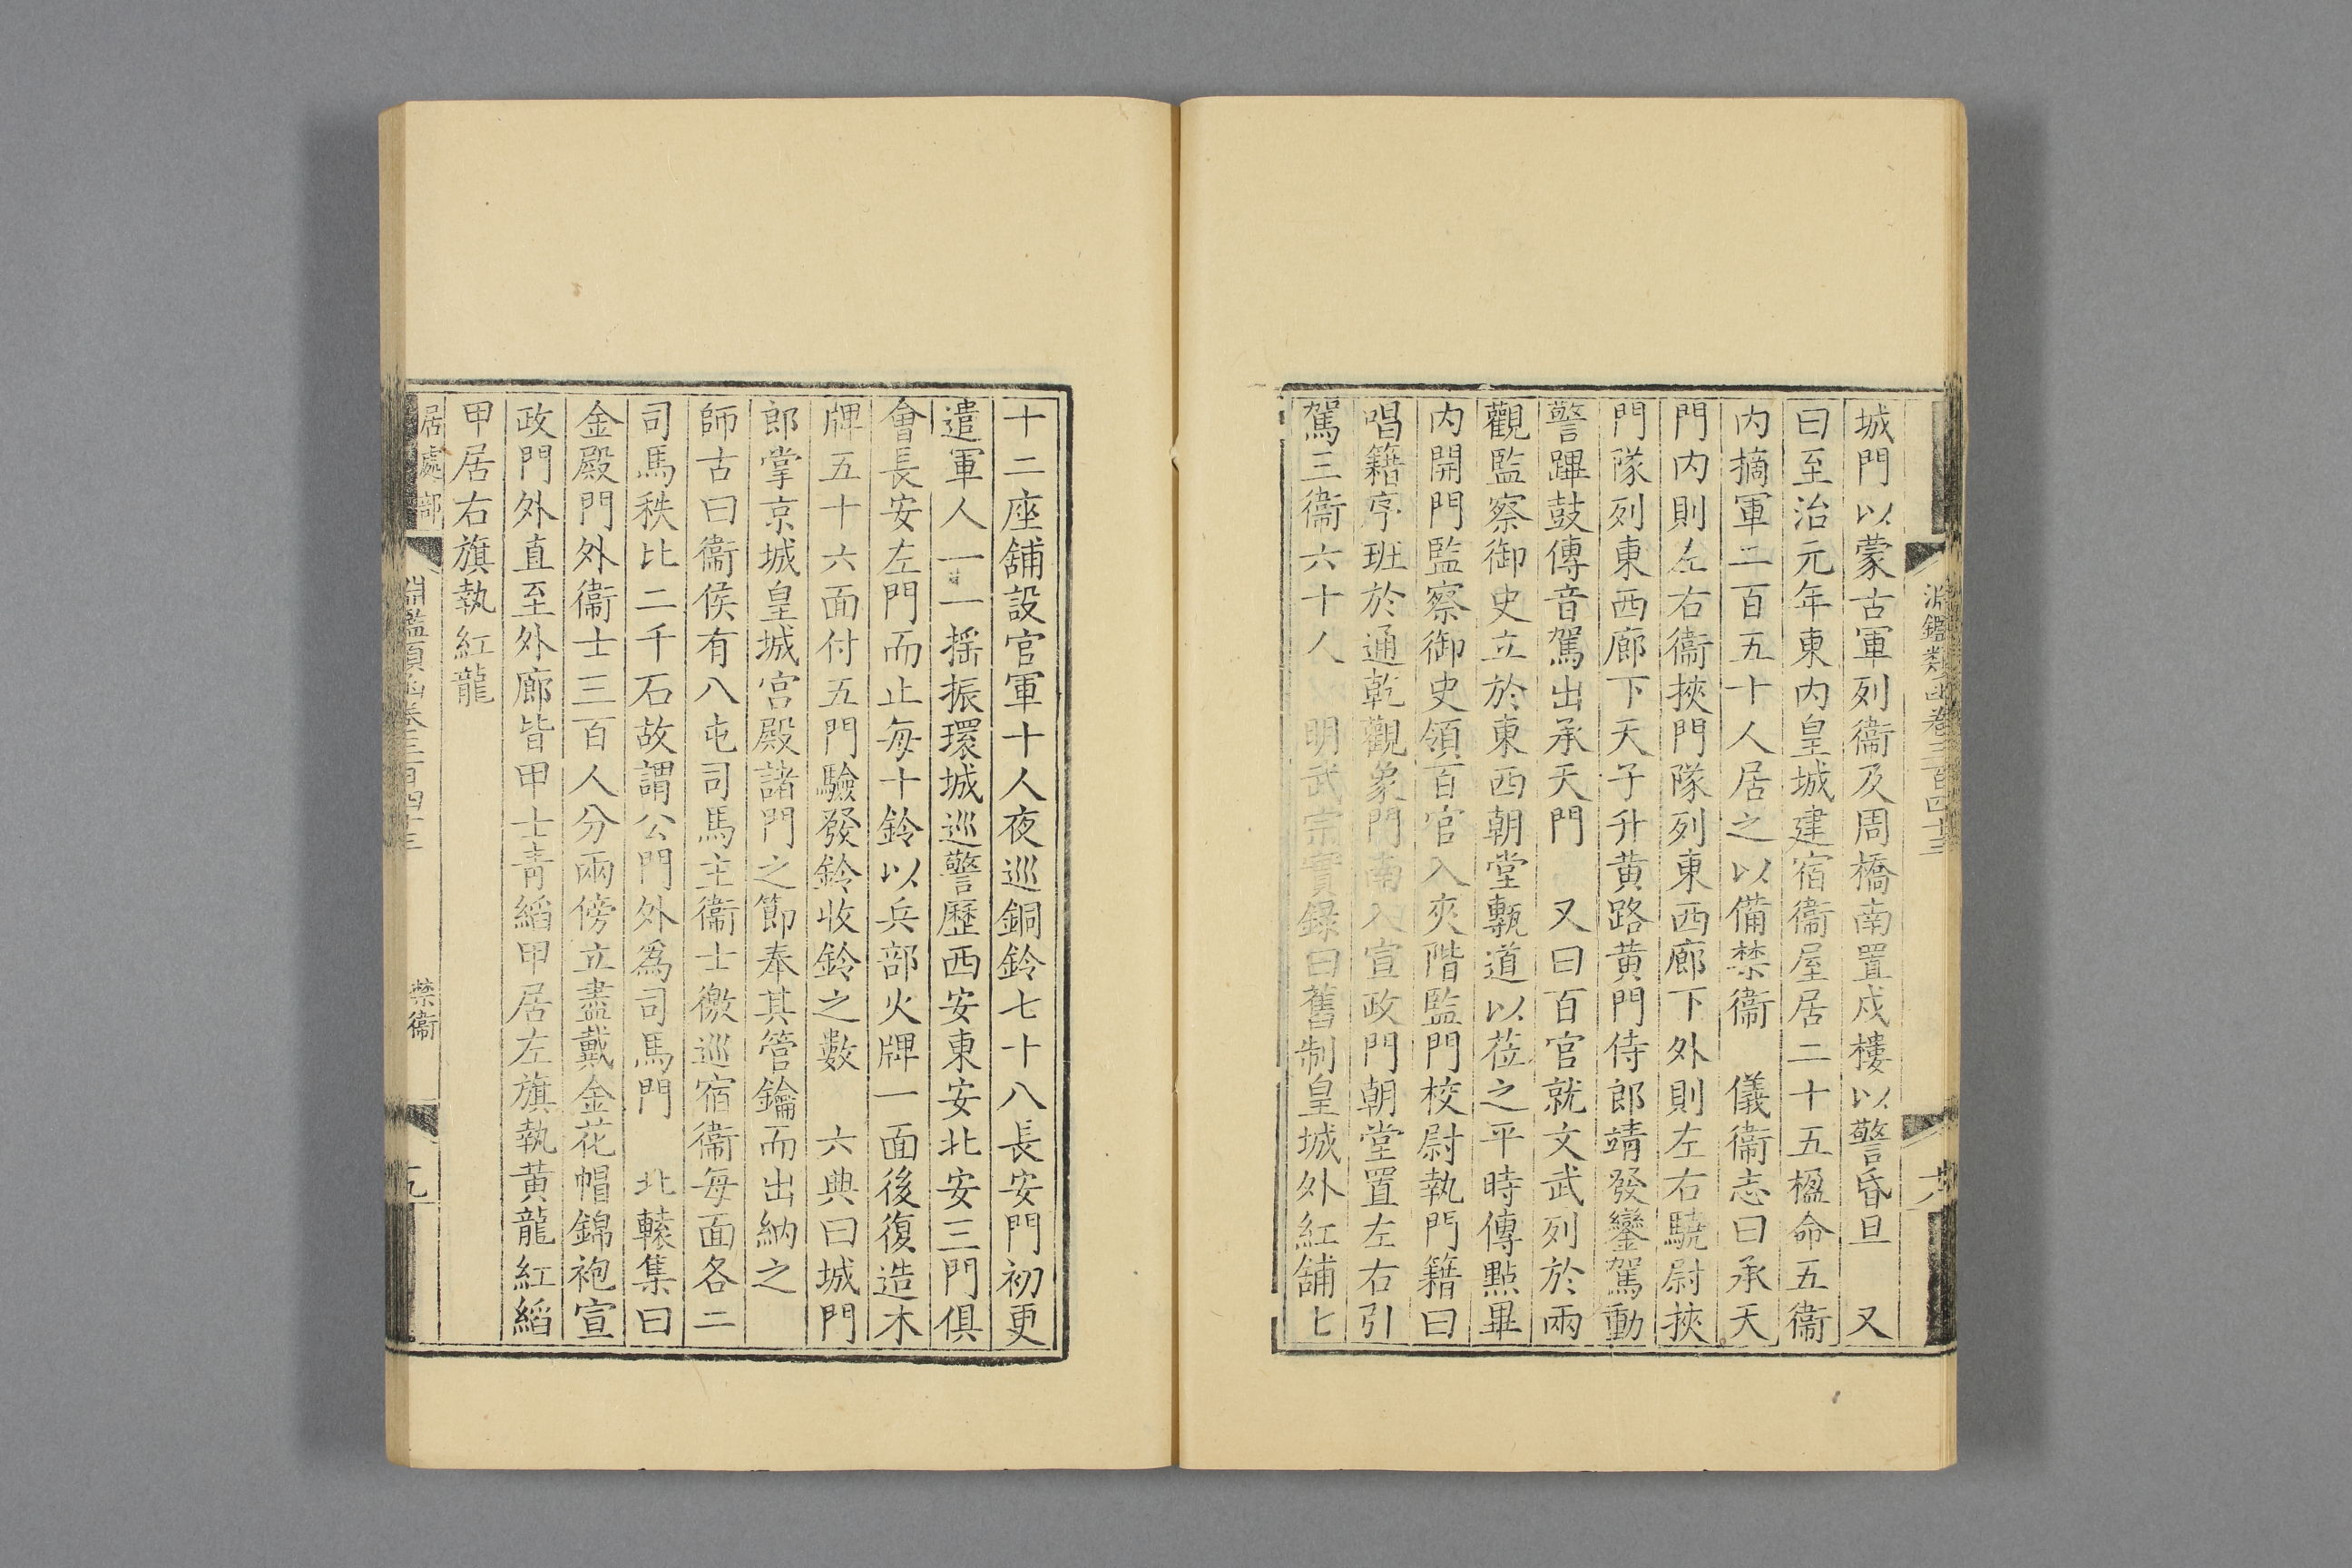 淵鑑類函卷三百四十三
城門以蒙古軍列衞及周橋南置戍樓以警昏旦　又
曰至治元年東內皇城建宿衞屋居二十五楹命五衞
內摘軍二百五十人居之以備禁衞　儀衞志曰承天
門內則左右衞挾門隊列東西廊下外則左右驍尉挾
門隊列東西廊下天子升黄路黄門侍郎請發鑾駕動
警蹕鼓傳音駕出承天門　又曰百官就文武列於兩
觀監察御史立於東西朝堂甎道以莅之平時傳點畢
內開門監察御史領百官入夾階監門校尉執門籍曰
唱籍序班於通乾觀象門南入宣政門朝堂置左右引
駕三衞六十人　明武宗實錄曰舊制皇城外紅舖七
十二座舖設官軍十人夜巡銅鈴七十八長安門初更
遣軍人一一摇振環城巡警歷西安東安北安三門俱
會長安左門而止每十鈴以兵部火牌一面後復造木
牌五十六面付五門驗發鈴收鈴之數　六典曰城門
郎掌京城皇城宮殿諸門之節奉其管鑰而出納之
師古曰衞侯有八屯司馬主衞士徼巡宿衞每面各二
司馬秩比二千石故謂公門外爲司馬門　北轅集曰
金殿門外衞士三百人分兩傍立盡戴金花帽錦袍宣
政門外直至外廊皆甲士青縚甲居左旗執黄龍紅縚
甲居右旗執紅龍
居處部
淵鑑類函卷三百四十三　禁衞　十九